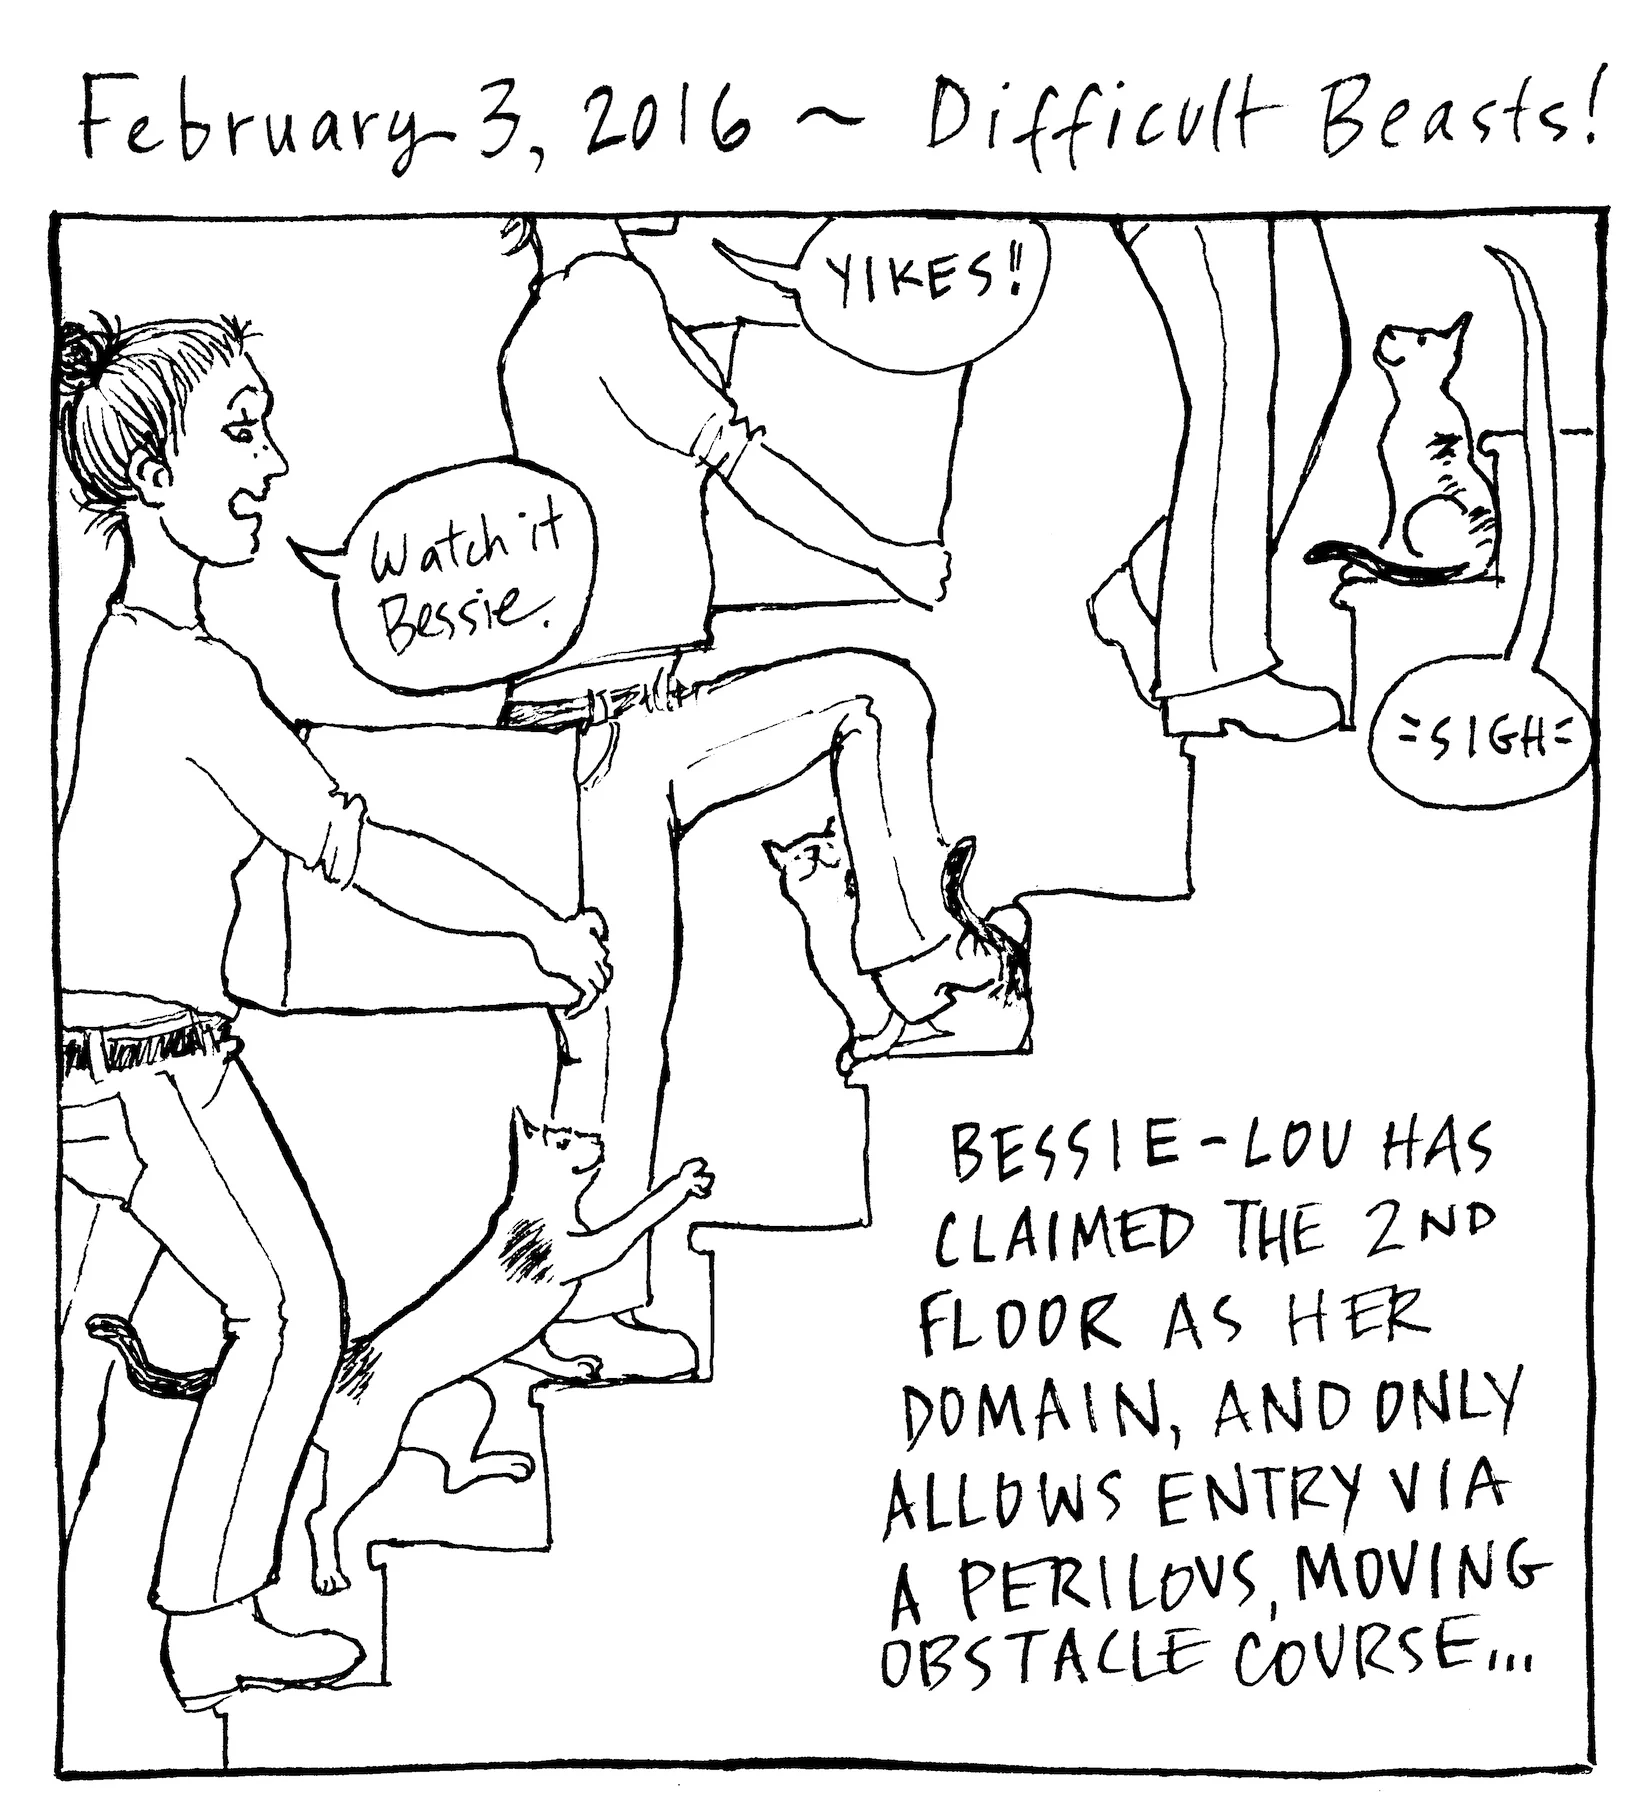 February 3, 2016 ~ Difficult Beasts!
YIKES!!
Watch it
Bessie.
=SIGH=
BESSIE-LOU HAS
CLAIMED THE 2ND
FLOOR AS HER
DOMAIN, AND ONLY
ALLOWS ENTRY VIA
A PERILOUS, MOVING
OBSTACLE COURSE...